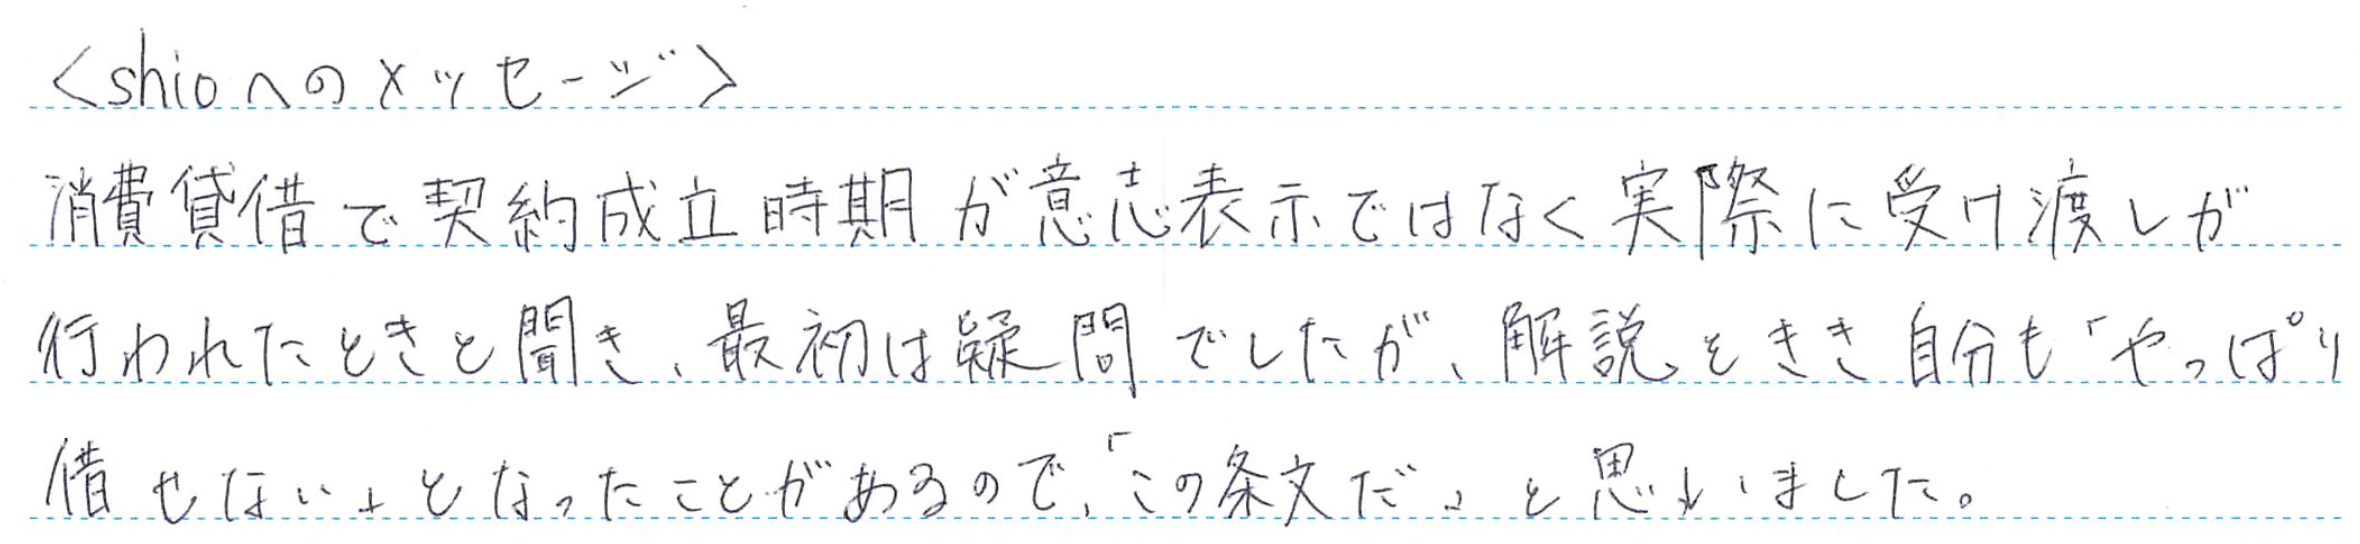 <shioへのメッセージ>
消費貸借で契約成立時期が意志表示ではなく実際に受け渡しが
行われたときと聞き、最初は疑問でしたが、解説をきき自分も「やっぱり
借せない」となったことがあるので、「この条文だ」と思いました。